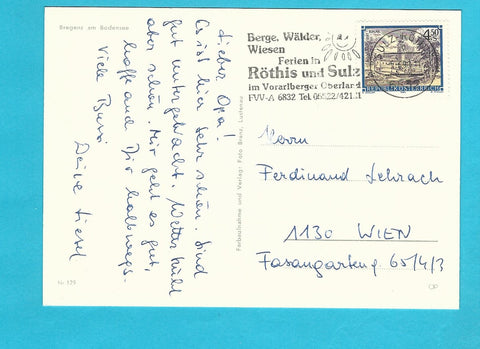 Bregenz am Bodensee
Lieber Opa!
Es ist hier sehr schön. Sind
gut untergebracht. Wetter
aber schön. Mir geht es gut,
hoffe auch Dir halbwegs.
Viele Bussi
Deine Liesl
Nr. 125
Farbaufnahme und Verlag: Foto Branz, Lustenau
Berge, Wälder,
Wiesen
Ferien in
Röthis und Sulz
im Vorarlberger Oberland
FVV-A 6832 Tel. 05522/421
4.50
REPUBLIK ÖSTERREICH
Herrn
Ferdinand Lehrach
1130 WIEN
Fasangarteng. 65/4/3